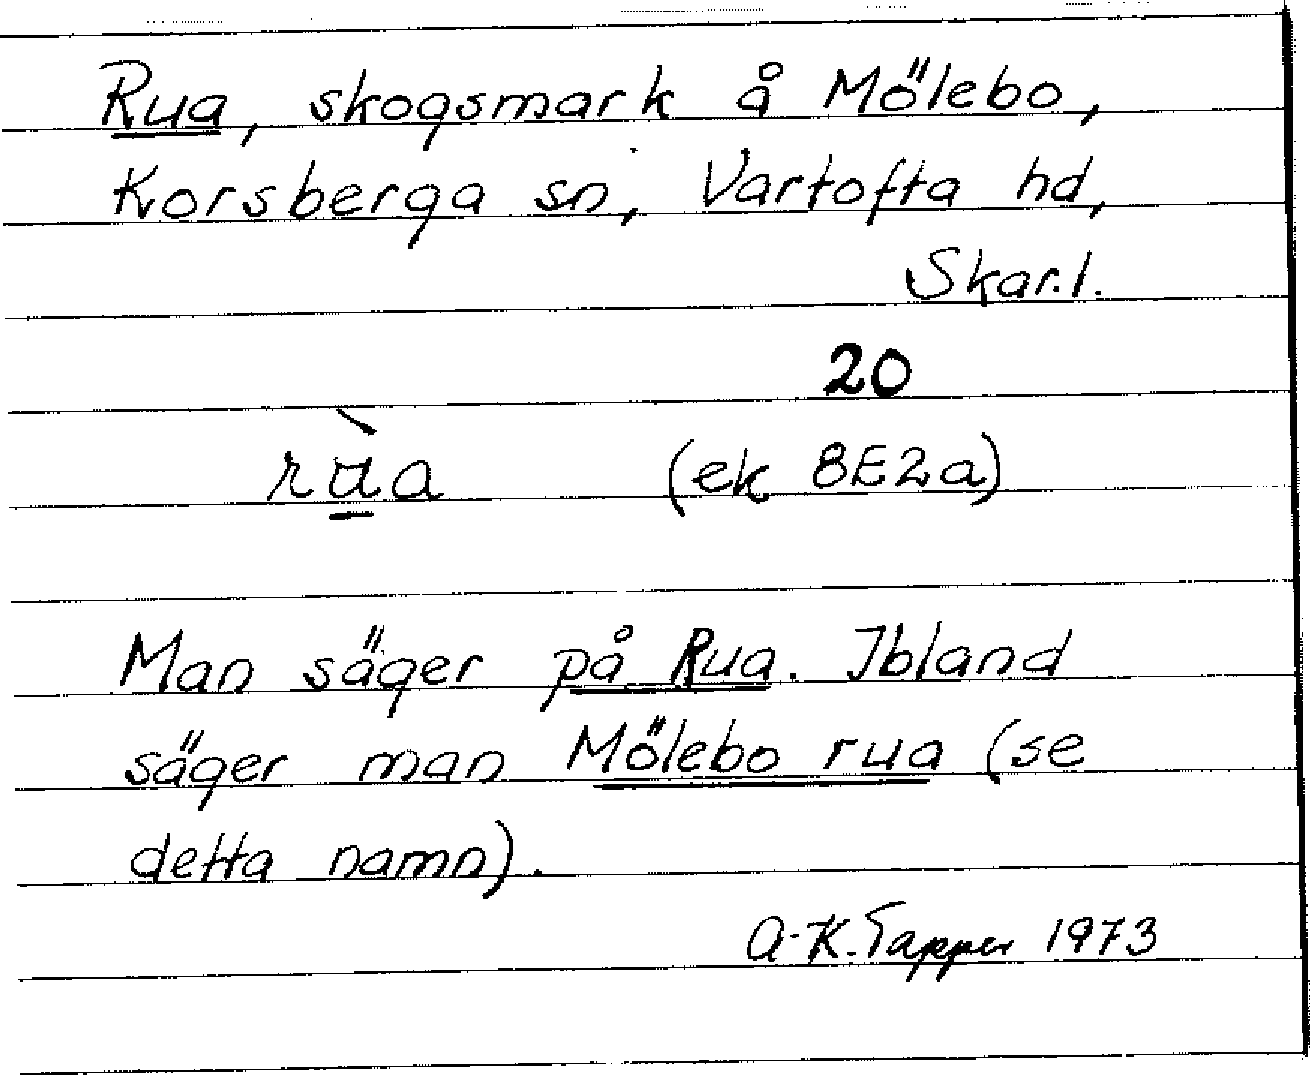 Rua, skogsmark å Mölebo,
Korsberga sn, Vartofta hd,
Skar.l.
20
(ek 8E2a)
Man säger på Rua. Ibland
säger man Mölebo rua (se
detta namn).
A-K. Tapper 1973